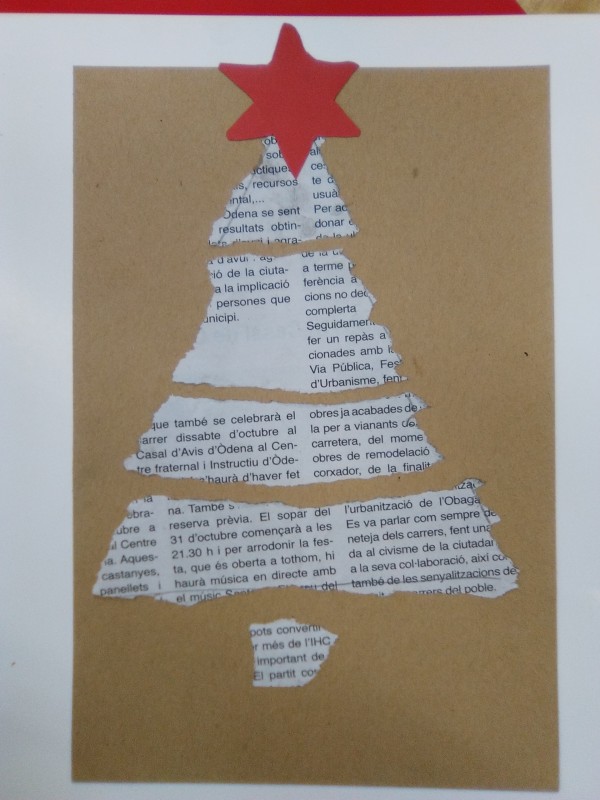 s, recursos
ental,...
Òdena se sent
resultats obtin-
al
ce-
te d
usuà
Per
donar
d'avui
ió de la ciuta-
a la implicació
persones que
unicipi.
a terme
ferència a
cions no
complerta
Seguidamen
fer un repàs a
cionades amb
Via Pública,
d'Urbanisme,
que també se celebrarà el
arrer dissabte d'octubre al
Casal d'Avis d'Òdena al Cen-
tre fraternal i Instructiu d'Òde-
n'haurà d'haver fet
obres ja acabades
la per a vianants
carretera, del mome
obres de remodelació
corxador, de la finalit
la
ebra-
ubre a
al Centre
a. Aques-
castanyes,
panellets i
na. També
reserva prèvia. El sopar del
31 d'octubre començarà a les
21.30 h i per arrodonir la fes-
ta, que és oberta a tothom, hi
haurà música en directe amb
el músic
del
l'urbanització de l'Obaga
Es va parlar com sempre de
neteja dels carrers, fent una
da al civisme de la ciutadan
a la seva col·laboració, així co
també de les senyalitzacions de
carrers del poble.
pots converti
r més de l'IHC
important de
El partit